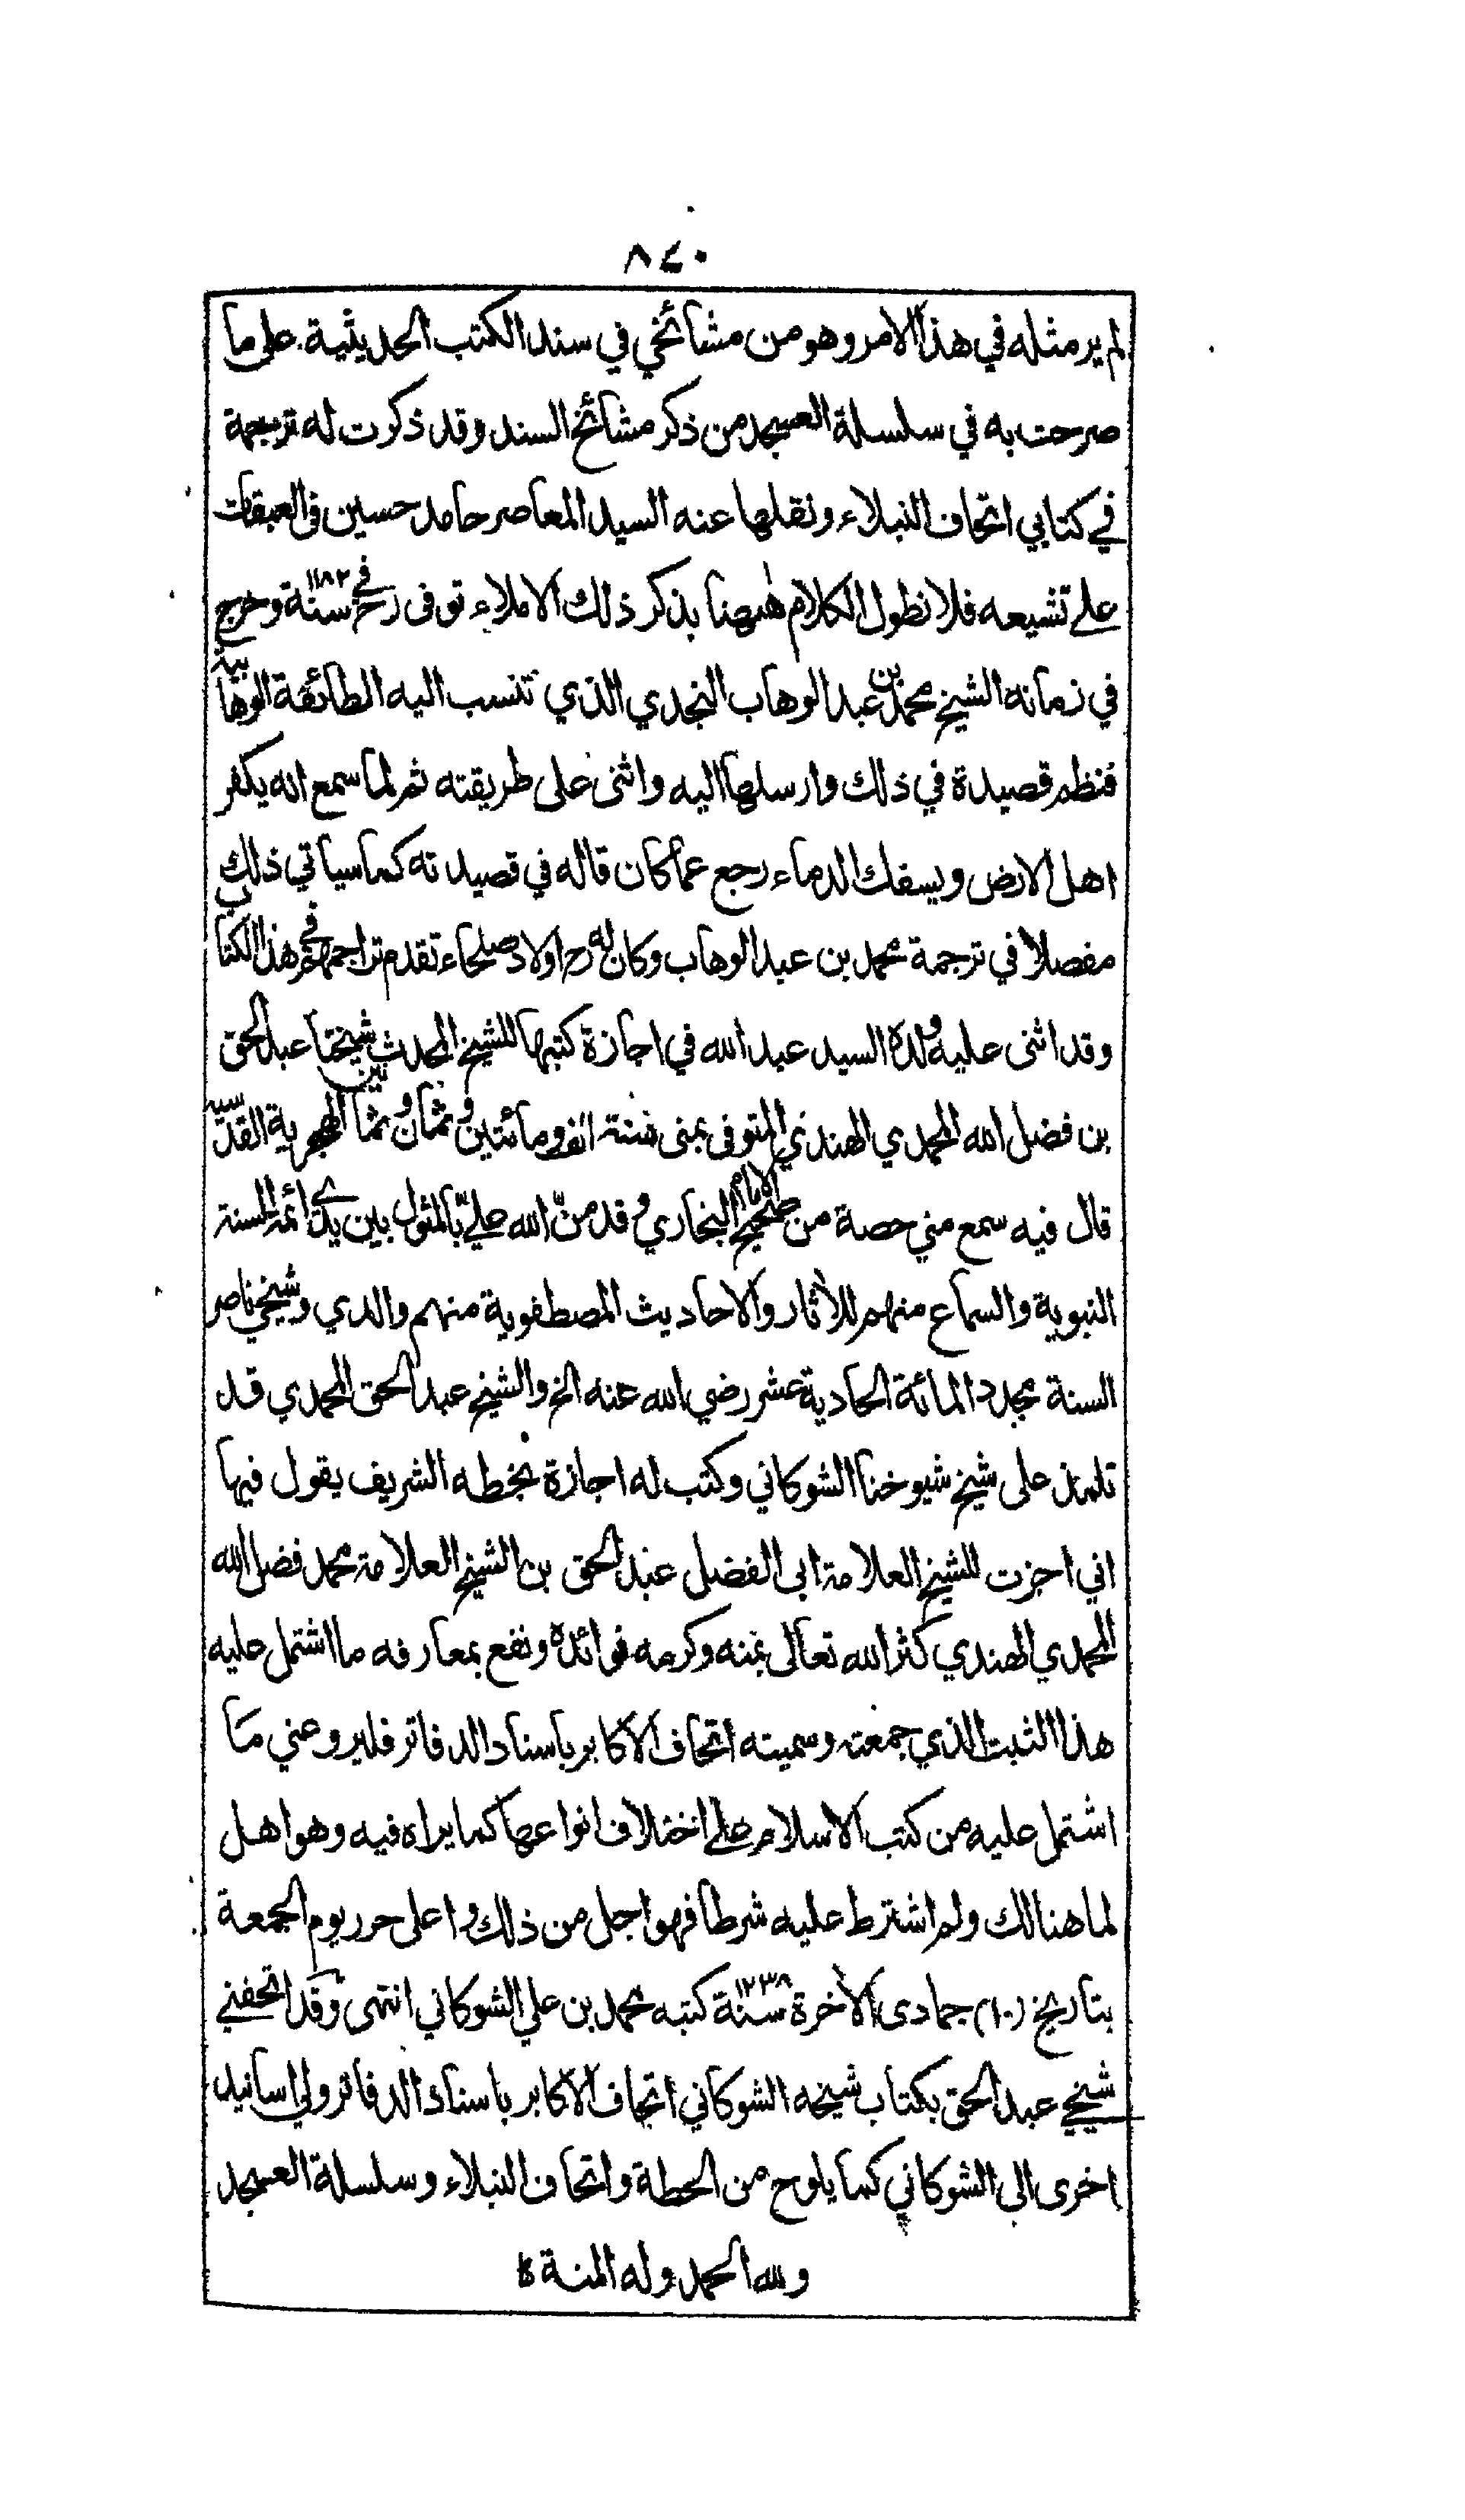 ٨٤٠
لم ير مثله في هذا الامر وهو من مشائخي في سند الكتب الحديثية على ما
صرحت به في سلسلة العسجد من ذكر مشائخ السند وقد ذكرت له ترجمة
في كتابي اتحاف النبلاء ونقلها عنه السيد المعاصر حامد حسين في العبقات
على تشيعه فلا نطول الكلام ههنا بذكر ذلك الاملاء توفى رح في سنة ١١٨٢ وخرج
في زمانه الشيخ محمد بن عبد الوهاب النجدي الذي تنسب اليه الطائفة الوهابية
فنظم قصيدة في ذلك وارسلها اليه واثنى على طريقته ثم لما سمع انه يكفر
اهل الارض ويسفك الدماء رجع عما كان قاله في قصيدته كما سياتي ذلك
مفصلا في ترجمة محمد بن عبد الوهاب وكان له رح اولاد صلحاء تقدم تراجمهم في هذا الكتاب
وقد اثنى عليه ولده السيد عبد الله في اجازة كتبها للشيخ المحدث شيخنا عبد الحق
بن فضل الله المحمدي الهندي المتوفى بمنى سنة الف ومائتين وثمان وثمانين الهجرية القدسية
قال فيه سمع مني حصة من صحيح الامام البخاري وقد منّ الله عليّ بالمثول بين يدي ائمة السنة
النبوية والسماع منهم للاثار والاحاديث المصطفوية منهم والدي وشيخي ناصر
السنة مجدد المائة الحادية عشر رضي الله عنه الخ والشيخ عبد الحق المحمدي قد
تلمذ على شيخ شيوخنا الشوكاني وكتب له اجازة بخطه الشريف يقول فيها
اني اجزت للشيخ العلامة ابى الفضل عبد الحق بن الشيخ العلامة محمد فضل الله
المحمدي الهندي كثر الله تعالى بمنه وكرمه فوائده ونفع بمعارفه ما اشتمل عليه
هذا الثبت الذي جمعته وسميته اتحاف الاكابر باسناد الدفاتر فليرو عني ما
اشتمل عليه من كتب الاسلام على اختلاف انواعها كما يراه فيه وهو اهل
لما هنالك ولم اشترط عليه شرطا فهو اجل من ذلك واعلى حرر يوم الجمعة
بتاريخ (١٠) جمادى الآخرة سنة ١٢٣٨ كتبه محمد بن علي الشوكاني انتهى وقد اتحفني
شيخي عبد الحق بكتاب شيخه الشوكاني اتحاف الاكابر باسناد الدفاتر ولي اسانيد
اخرى الى الشوكاني كما يلوح من الحطة واتحاف النبلاء وسلسلة العسجد
ولله الحمد وله المنة ه